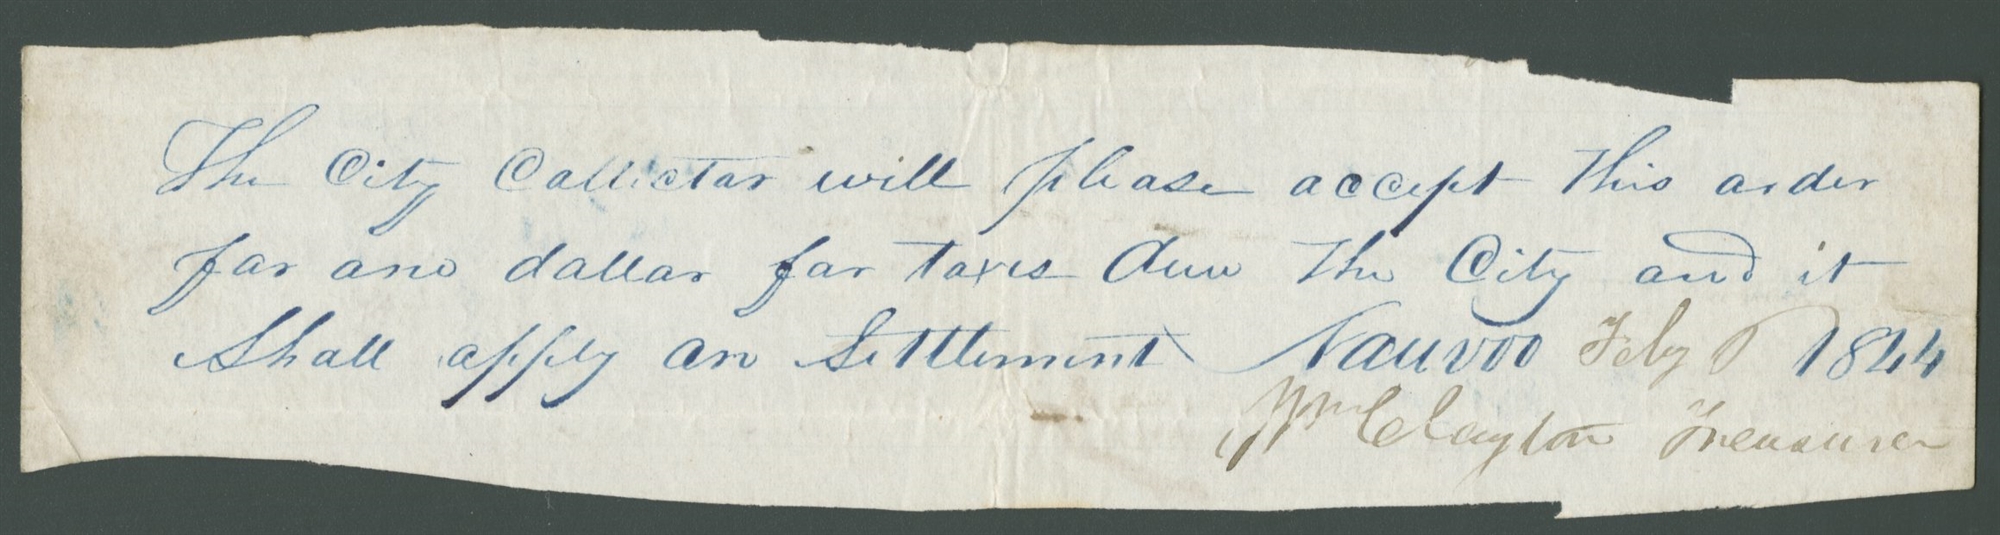 The City Collector will please accept this order
for one dollar for taxes due the City and it
Shall apply on Settlement Nauvoo Feby 1844
Wm Clayton Treasurer